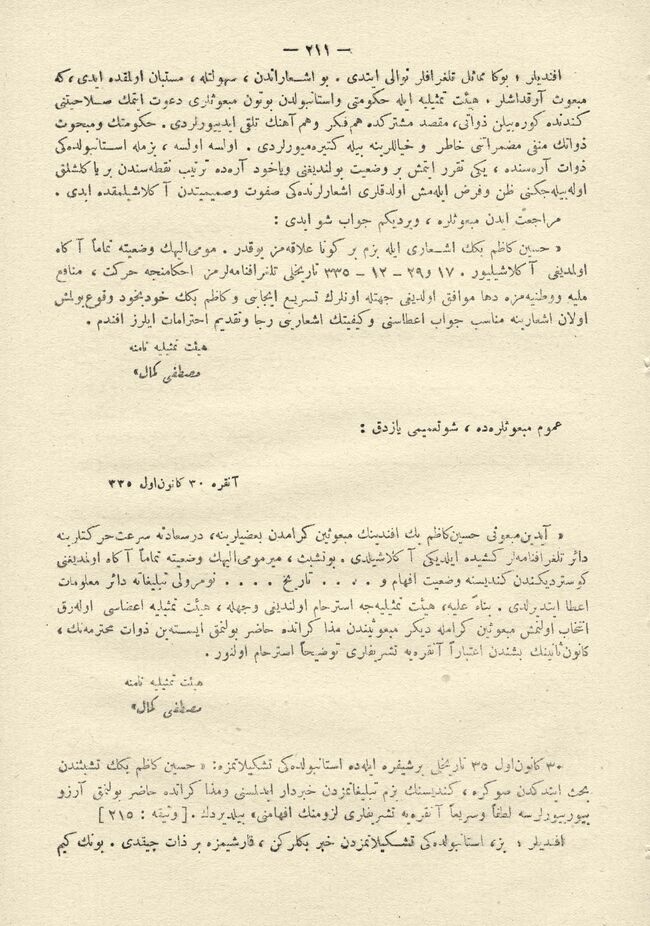 — ٢١١ —
افندیلر ؛ بوكا مماثل تلغرافلر توالی ایتدی . بو اشعاراتدن ، سهولتله ، مستبان اولمقده ایدی ، كه
مبعوث آرقداشلر ، هیئت تمثیلیه ایله حكومتی واستانبولدن بوتون مبعوثلری دعوت ایتمك صلاحیتنی
كندنده كوره بیلن ذواتی ، مقصد مشتركده هم فكر وهم آهنك تلقی ایدییورلردی . حكومتك ومبحوث
ذواتك منفی مضمراتنی خاطر و خیاللرینه بیله كتیره میورلردی . اولسه اولسه ، بزمله استانبولده كی
ذوات آره سنده ، یكی تقرر ایتمش بر وضعیت بولندیغنی ویاخود آره ده ترتیب نقطه سندن بر یاكلشلق
اوله بیله جكنی ظن وفرض ایله مش اولدقلری اشعارلرنده كی صفوت وصمیمیتدن آكلاشیلمقده ایدی .
مراجعت ایدن مبعوثلره ، ویردیكم جواب شو ایدی :
« حسین كاظم بكك اشعاری ایله بزم بر كونا علاقه مز یوقدر . مومی الیهك وضعیته تماماً آكاه
اولمدیغی آكلاشیلیور . ١٧ و ٢٩ – ١٢ – ٣٣٥ تاریخلی تلغرافنامه لرمز احكامنجه حركت ، منافع
ملیه ووطنیه مزه دها موافق اولدیغی جهتله اونلرك تسریع ایجابنی وكاظم بكك خودبخود وقوعبولمش
اولان اشعارینه مناسب جواب اعطاسنی وكیفیتك اشعارینی رجا وتقدیم احترامات ایلرز افندم .
هیئت تمثیلیه نامنه
مصطفی كمال»
عموم مبعوثلره ده ، شو تعمیمی یازدق :
آنقره ٣٠ كانون اول ٣٣٥
« آیدین مبعوثی حسین كاظم بك افندینك مبعوثین كرامدن بعضیلرینه ، درسعادته سرعت حركتلرینه
دائر تلغرافنامه لر كشیده ایلدیكی آكلاشیلدی . بو تشبث ، میر مومی الیهك وضعیته تماماً آكاه اولمدیغنی
كوستردیكندن كندیسنه وضعیت افهام و . . . . تاریخ . . . . نومرولی تبلیغاته دائر معلومات
اعطا ایتدیرلدی . بناءً علیه ، هیئت تمثیلیه جه استرحام اولندیغی وجهله ، هیئت تمثیلیه اعضاسی اوله رق
انتخاب اولنمش مبعوثین كرامله دیكر مبعوثیندن مذاكراتده حاضر بولنمق ایسته ین ذوات محترمه نك ،
كانون ثانینك بشندن اعتباراً آنقره یه تشریفلری توضیحاً استرحام اولنور .
هیئت تمثیلیه نامنه
مصطفی كمال»
٣٠ كانون اول ٣٥ تاریخلی بر شیفره ایله ده استانبولده كی تشكیلاتمزه : « حسین كاظم بكك تشبثندن
بحث ایتدكدن صوكره ، كندیسنك بزم تبلیغاتمزدن خبردار ایدلمسنی ومذاكراتده حاضر بولنمق آرزو
بیورییورلرسه لطفاً وسریعاً آنقره یه تشریفلری لزومنك افهامنی ، بیلدیردك . [وثیقه : ٢١٥]
افندیلر ؛ بز ، استانبولده كی تشكیلاتمزدن خبر بكلركن ، قارشیمزه بر ذات چیقدی . بونك كیم